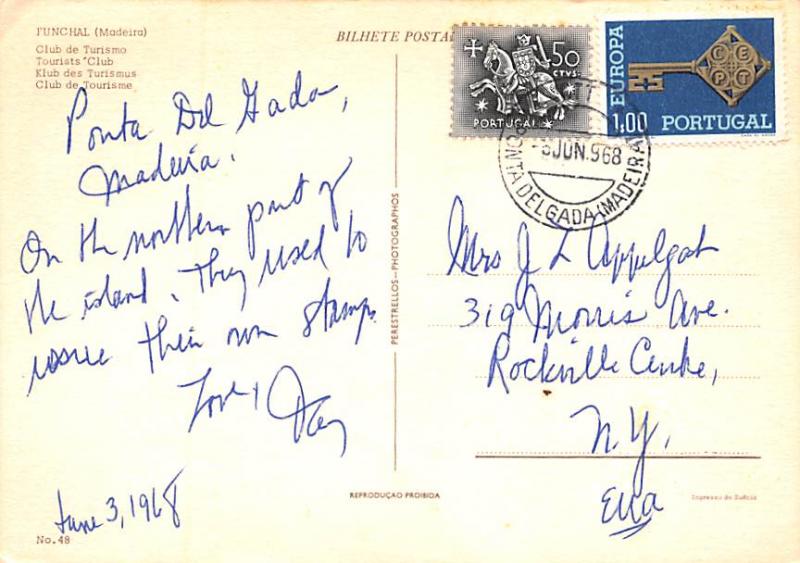 FUNCHAL (Madeira)
Club de Turismo
Tourists' Club
Klub des Turismus
Club de Tourisme
BILHETE POSTA
Ponta Del Gada,
Madeira.
On the northern part of
the island. They used to
issue their own stamps
Love,
June 3, 1968
No. 48
PERESTRELLOS-PHOTOGRAPHOS
REPRODUÇÃO PROIBIDA
50
CTVS.
PORTUGAL
EUROPA
CEPT
1.00 PORTUGAL
JUN.968
PONTA DELGADA (MADEIRA)
Mrs J L Appelgat
319 Morris Ave.
Rockville Centre,
N.Y.
Impresso na Suécia